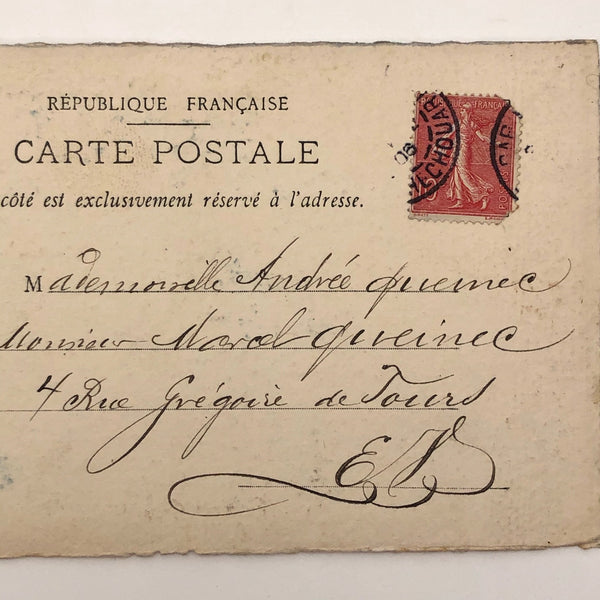 RÉPUBLIQUE FRANÇAISE
CARTE POSTALE
côté est exclusivement réservé à l'adresse.
Mademoiselle Andrée Queinec
Monsieur Marcel Queinec
4 Rue Grégoire de Tours
E V